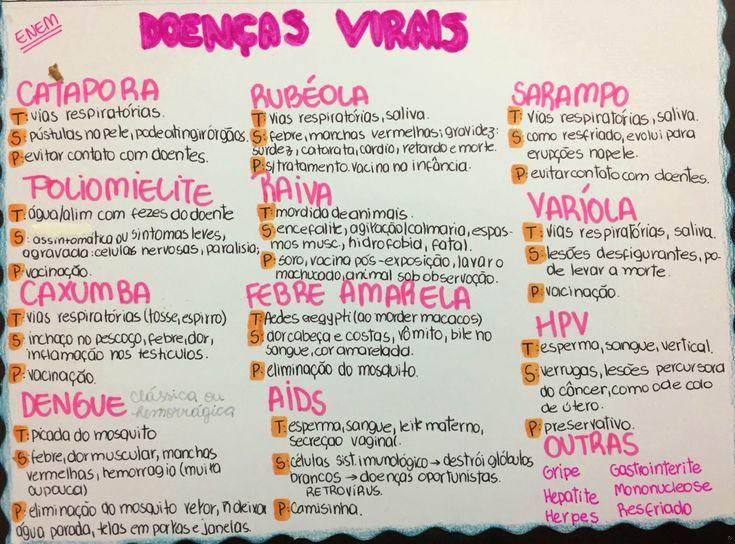 ENEM
DOENÇAS VIRAIS
CATAPORA
T: vias respiratórias.
S: pústulas na pele, pode atingir órgãos.
P: evitar contato com doentes.
POLIOMIELITE
T: água/alim com fezes do doente
S: assintomática ou sintomas leves,
agravada: celulas nervosas, paralisia;
P: vacinação.
CAXUMBA
T: vias respiratórias (tosse, espirro)
S: inchaço no pescoço, febre, dor,
inflamação nos testículos.
P: vacinação.
DENGUE clássica ou
hemorrágica
T: Picada do mosquito
S: febre, dor muscular, manchas
vermelhas, hemorragia (muita
ou pouca)
P: eliminação do mosquito vetor, ñ deixar
água parada, telas em portas e janelas.
RUBÉOLA
T: vias respiratórias, saliva.
S: febre, manchas vermelhas; gravidez:
surdez, catarata, cardio, retardo e morte.
P: s/ tratamento. vacina na infância.
RAIVA
T: mordida de animais.
S: encefalite, agitação/calmaria, espas-
mos musc, hidrofobia, fatal.
P: soro, vacina pós-exposição, lavar o
machucado, animal sob observação.
FEBRE AMARELA
T: Aedes aegypti (ao morder macacos)
S: dor cabeça e costas, vômito, bile no
sangue, cor amarelada.
P: eliminação do mosquito.
AIDS
T: esperma, sangue, leite materno,
secreção vaginal.
S: células sist. imunológico → destrói glóbulos
brancos → doenças oportunistas.
RETROVÍRUS.
P: Camisinha.
SARAMPO
T: vias respiratórias, saliva.
S: como resfriado, evolui para
erupções na pele.
P: evitar contato com doentes.
VARÍOLA
T: vias respiratórias, saliva.
S: lesões desfigurantes, po-
de levar a morte.
P: vacinação.
HPV
T: esperma, sangue, vertical.
S: verrugas, lesões percursora
do câncer, como o de colo
de útero.
P: preservativo.
OUTRAS
Gripe Gastrointerite
Hepatite Mononucleose
Herpes Resfriado